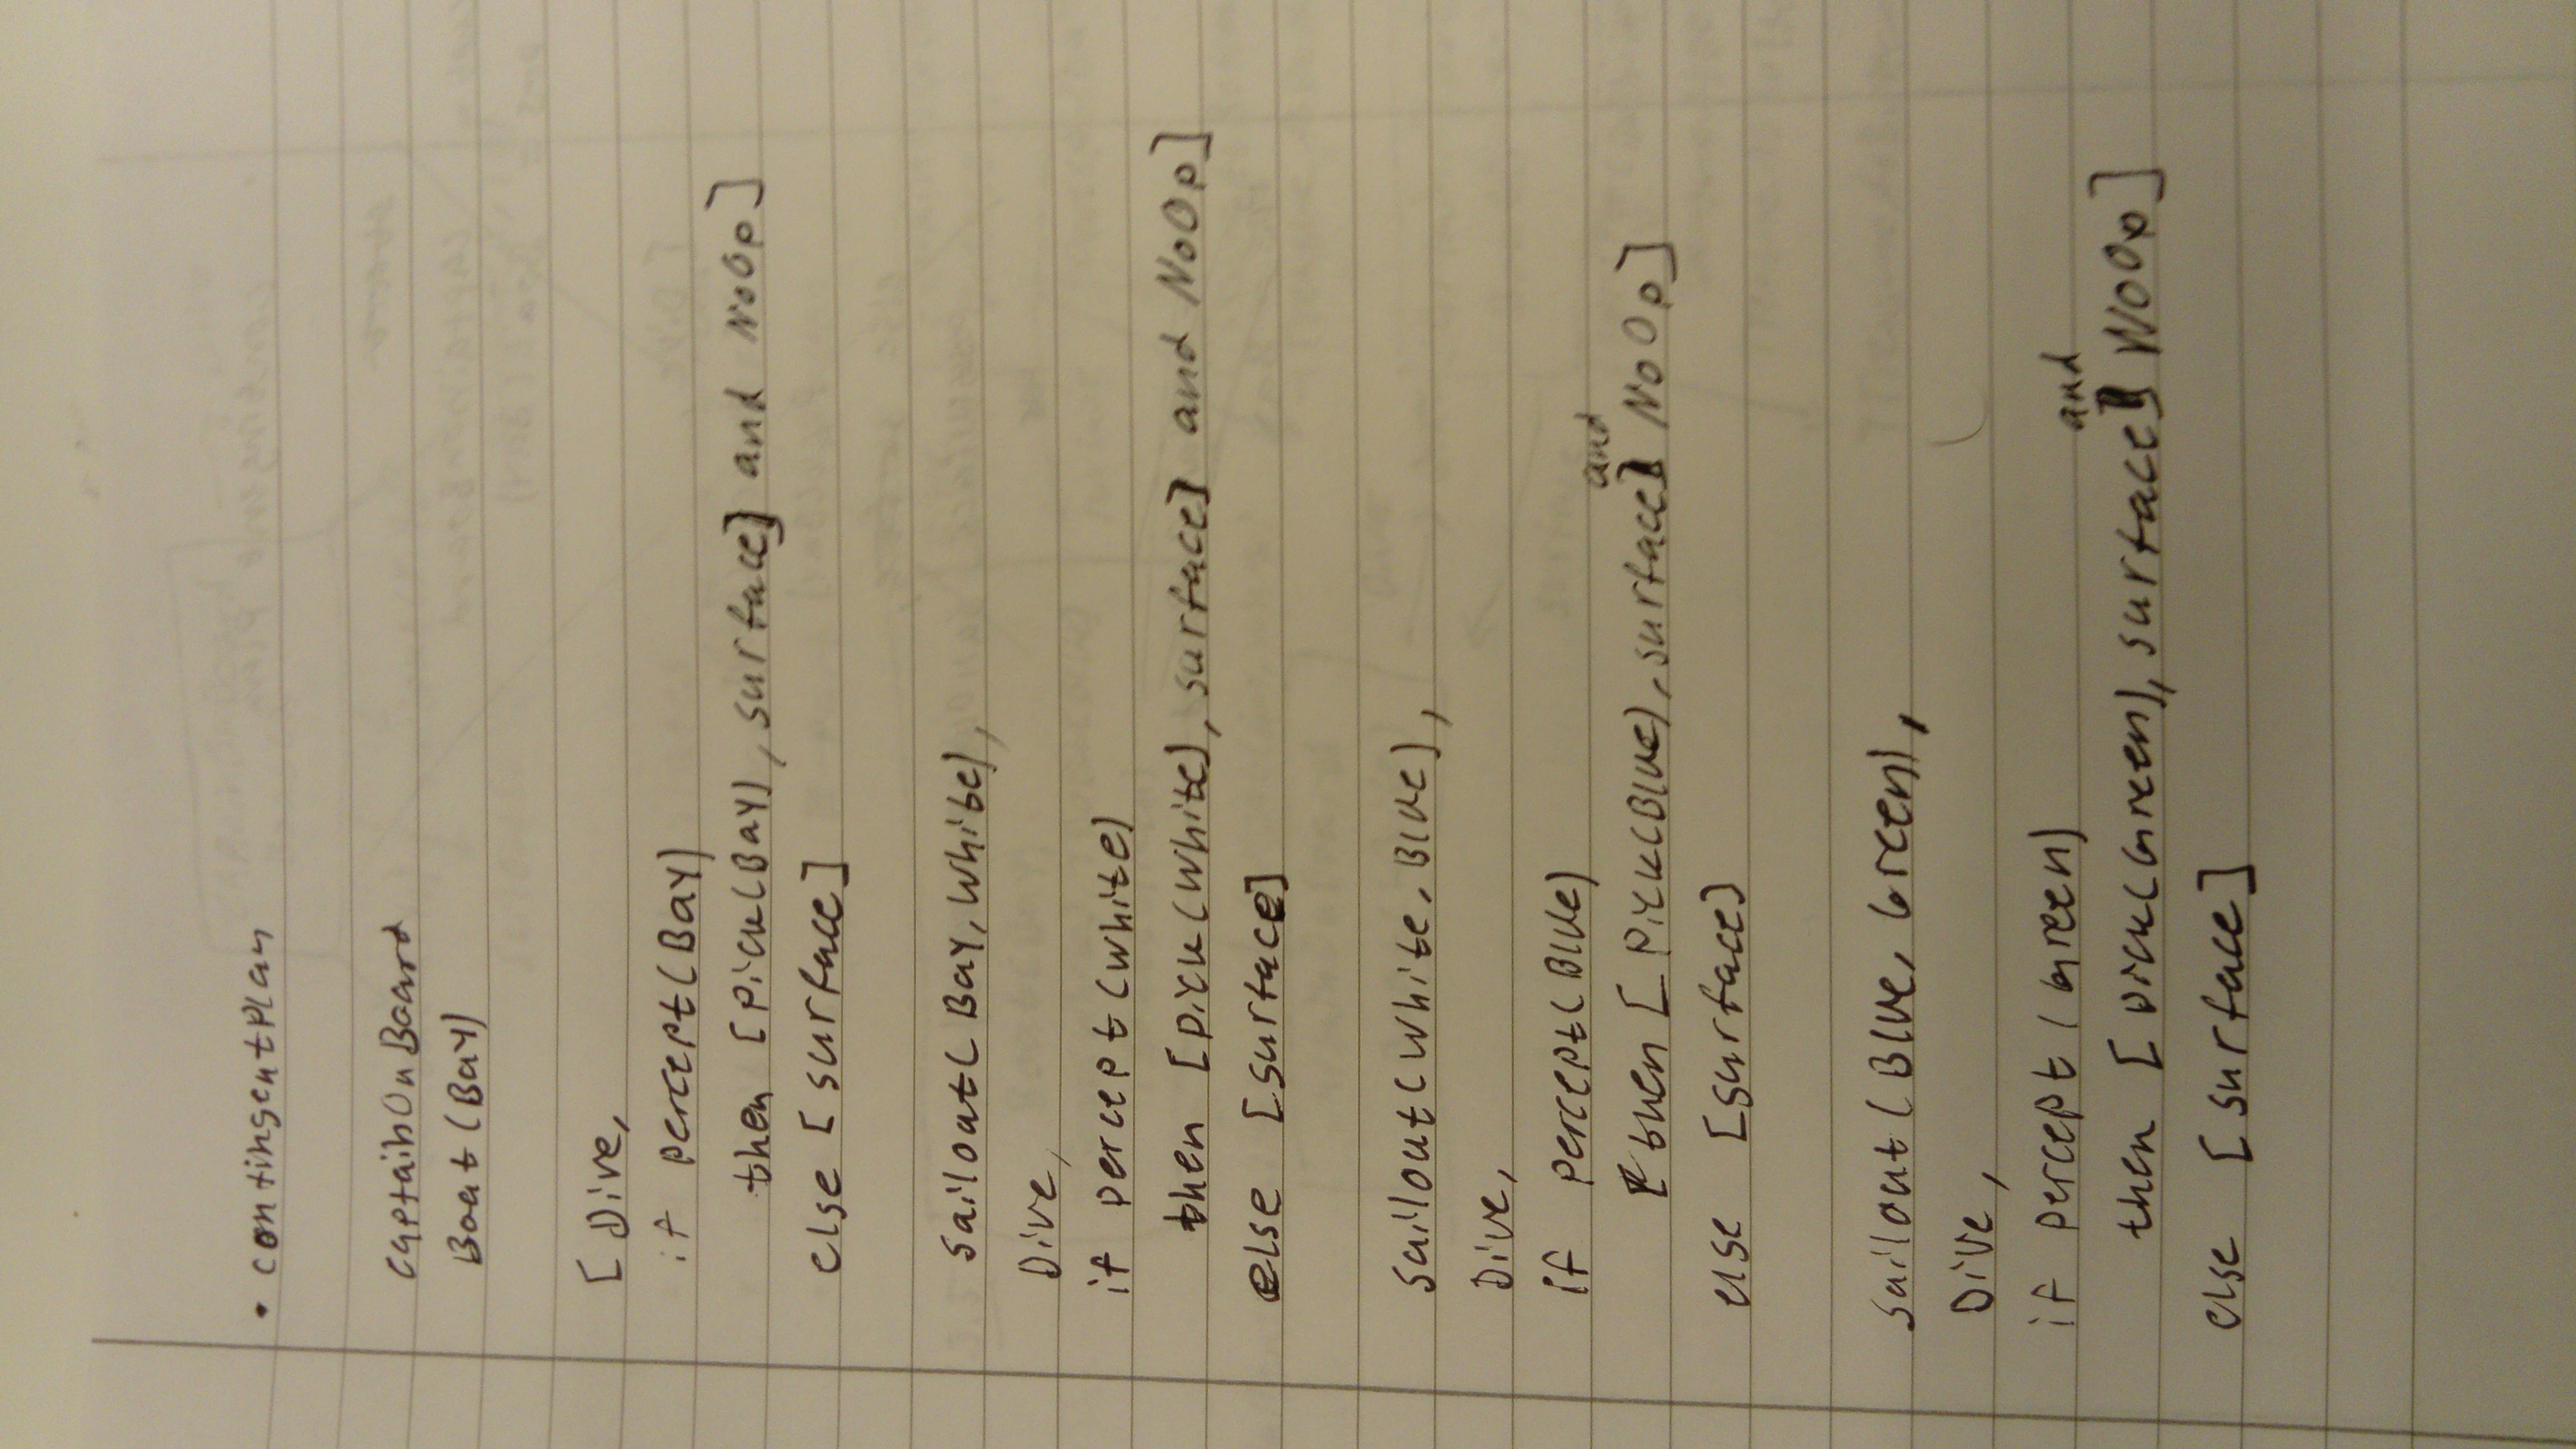 • contingentplan
CaptainOnBoard
Boat(Bay)
[Dive,
if percept(Bay)
then [pick(Bay), surface] and NoOp]
else [surface]
Sailout(Bay, White),
Dive,
if percept(white)
then [pick(White), surface] and NoOp]
else [surface]
Sailout(White, Blue),
Dive,
if percept(Blue)
then [pick(Blue), surface] and NoOp]
else [surface]
Sailout(Blue, Green),
Dive,
if percept(Green)
then [pick(Green), surface] and NoOp]
else [surface]